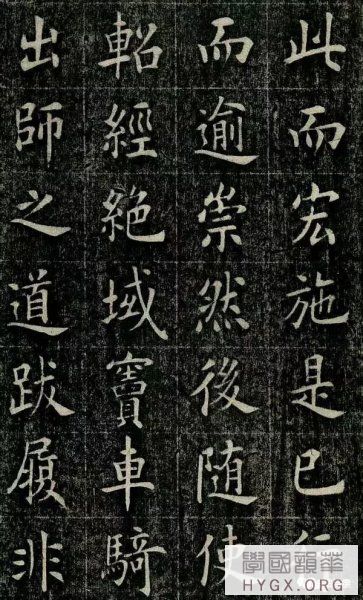 此而宏施是已
而逾崇然後随使
軺經絶域竇車騎
出師之道跋履非
華韻國學
HYGX.ORG